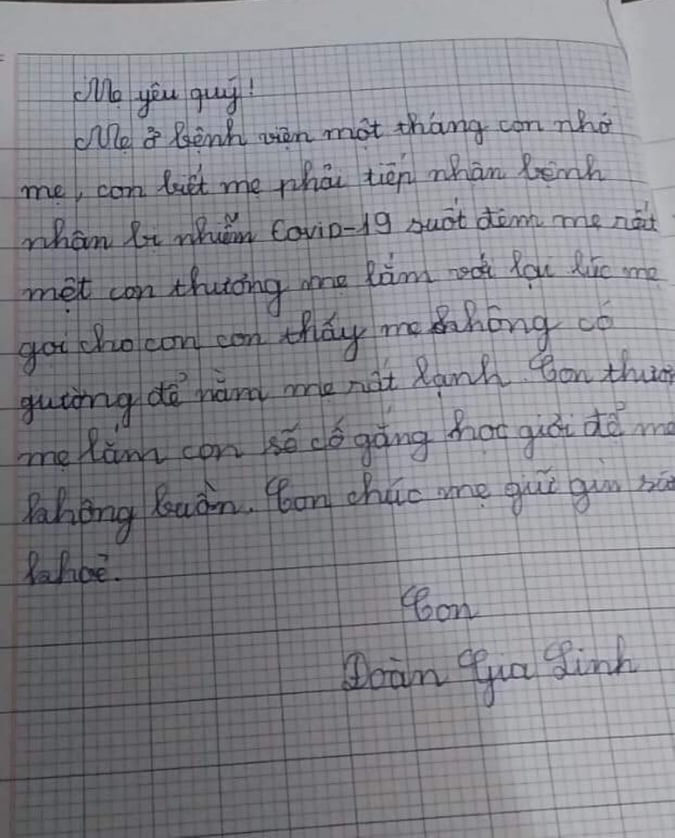 Mẹ yêu quý!
Mẹ ở bệnh viện một tháng con nhớ
mẹ, con biết mẹ phải tiếp nhận bệnh
nhân bị nhiễm Covid-19 suốt đêm mẹ rất
mệt con thương mẹ lắm với lại lúc mẹ
gọi cho con con thấy mẹ không có
guường để nằm mẹ rất lạnh. Con thươn
mẹ lắm con sẽ cố gắng học giỏi để mẹ
không buồn. Con chúc mẹ giữ gìn sức
khoẻ.
Con
Đoàn Gia Linh